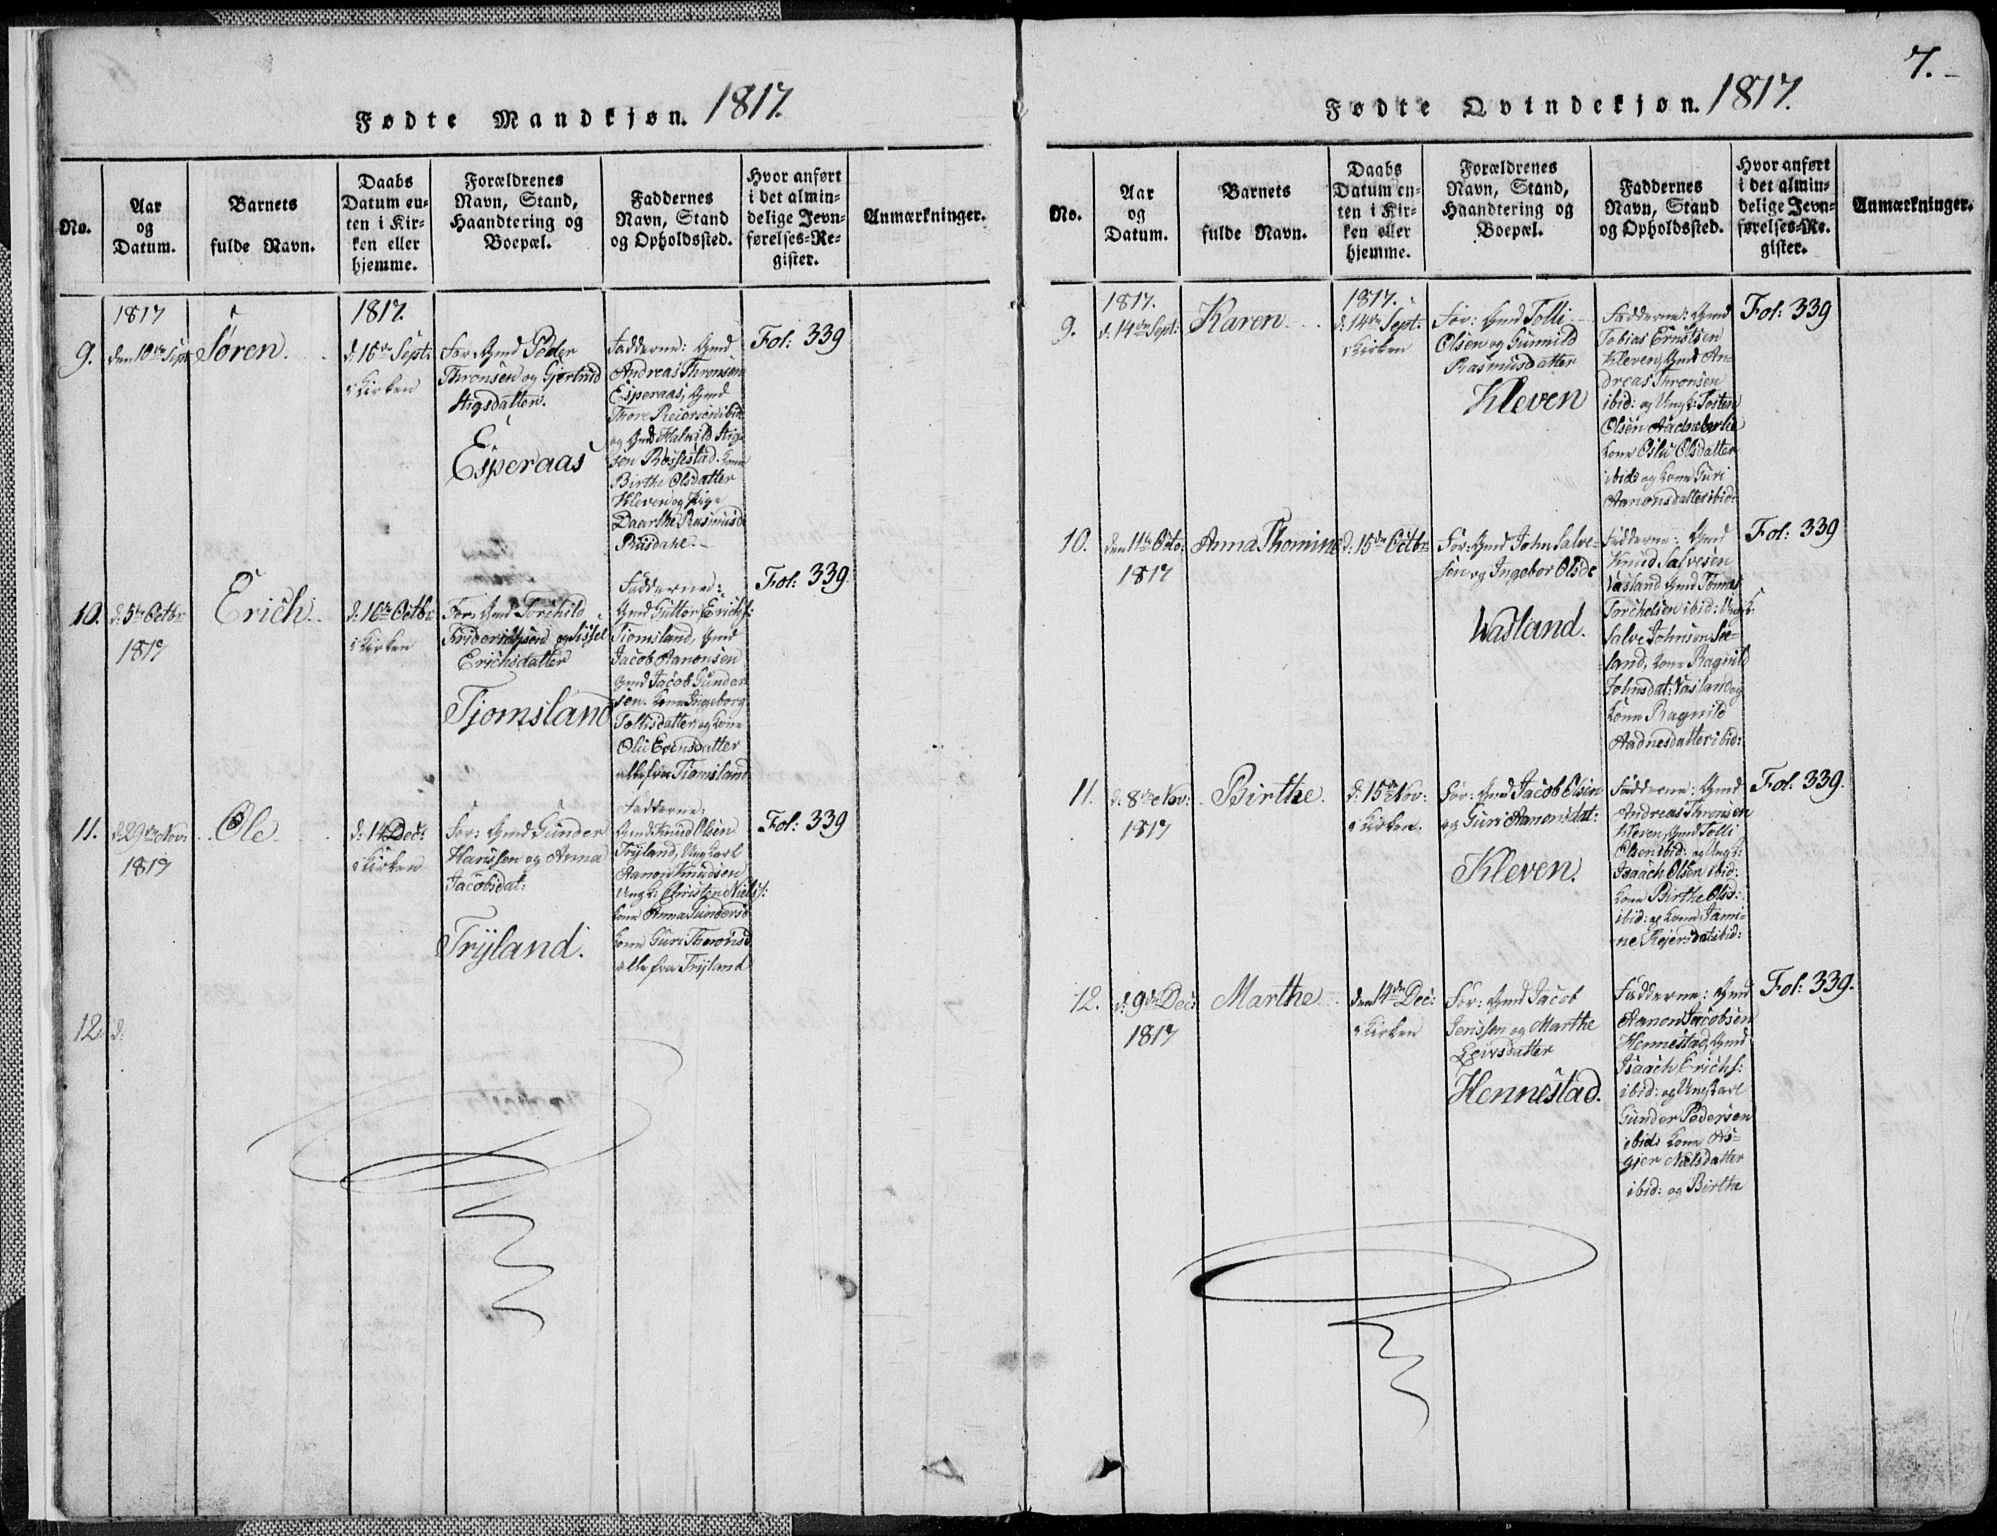 Fødte Mandkjøn. 1817.
No.
Aar
og
Datum.
Barnets
fulde Navn.
Daabs
Datum en-
ten i Kir-
ken eller
hjemme.
Forældrenes
Navn, Stand,
Haandtering og
Boepæl.
Faddernes
Navn, Stand
og Opholdssted.
Hvor anført
i det almin-
delige Jevn-
førelses-Re-
gister.
Anmærkninger.
9.
1817
den 10de Sept:
Søren.
1817.
d: 15de Sept:
i Kirken
For: Gmd Peder
Thronsen og Gjertrud
Stigsdatter.
Esperaas
Fadderne: Gmd
Andreas Thronsen
Esperaas, Gmd
Thore Reiersen ibid:
og Gmd Halvild Stig-
sen Røssestad. Kone
Birthe Olsdatter
Kleven og Pige
Daarthe Rasmusd:
Risdahl.
Fol: 339
10.
d: 5te Octbr
1817
Erich.
d: 16de Octbr
i Kirken
For: Gmd Torchild
Friderichsen og Sissel
Erichsdatter
Tjomsland
Fadderne:
Gmd Gutter Erichs:
Tjomsland, Gmd
Jacob Aanonsen
Gmd Jacob Gunder-
sen. Kone Ingeborg
Tollisdatter og Kone
Olu Evensdatter
alle fra Tjomsland
Fol: 339
11.
d: 29de Nov:
1817
Ole
d: 14 Dec:
i Kirken
For: Gmd Gunder
Hanssen og Anna
Jacobsdat:
Trÿland.
Fadderne:
Gmd Knud Olsen
Trÿland, Ungkarl
Aanon Knudsen
Ungk: Christen Niels:
Kone Anna Gundersd
Kone Guri Thoronsd
alle fra Trÿland
Fol: 339
12.
d:
7.
Fødte Qvindekjøn. 1817.
No.
Aar
og
Datum.
Barnets
fulde Navn.
Daabs
Datum en-
ten i Kir-
ken eller
hjemme.
Forældrenes
Navn, Stand,
Haandtering og
Boepæl.
Faddernes
Navn, Stand
og Opholdssted.
Hvor anført
i det almin-
delige Jevn-
førelses-Re-
gister.
Anmærkninger.
9.
1817.
d: 14de Sept:
Karen.
1817.
d: 14de Sept:
i Kirken
For: Gmd Tolli
Olsen og Gunnild
Rasmusdatter
Kleven
Fadderne: Gmd
Tobias Ernstsen
Kleven, Gmd An-
dreas Thronsen
ibid: og Ungk: Tosten
Olsen
Kone Oslu Olsdatter
ibid: og Kone Guri
Aanonsdatter ibid:
Fol: 339
10.
den 11te Octo:
1817
Anna Thomine
d: 15de Octbr
For: Gmd John Salve-
sen og Ingebor Olsd:
Wasland.
Fadderne: Gmd
Knud Salvesen
Vasland Gmd Tønnes
Torchelsen ibid: Ungk:
Salve Johnsen See-
land, Kone Ragnild
Johnsdat: Vasland og
Kone Ragnild
Aadnesdatter ibid:
Fol: 339
11.
d: 8de Nov:
1817
Birthe.
d: 15de Nov:
i Kirken.
For: Gmd Jacob Olsen
og Guri Aanonsdat:
Kleven.
Fadderne: Gmd
Andreas Thronsen
Kleven, Gmd Tolli
Olsen ibid: og Ungk:
Isaach Olsen ibid:
Kone Birthe Olsd:
ibid: og Kone Jami-
ne Rejersdat: ibid:
Fol: 339.
12.
d: 9de Dec:
1817
Marthe
den 14de Dec:
i Kirken
For: Gmd Jacob
Jenssen og Marthe
Leivsdatter
Hennestad.
Fadderne: Gmd
Aanon Jacobsen
Hennestad, Gmd
Isaach Erichs:
ibid: og Ungkarl
Gunder Pedersen
ibid: Kone As-
gier Nielsdatter
ibid: og Birthe
Fol: 339.